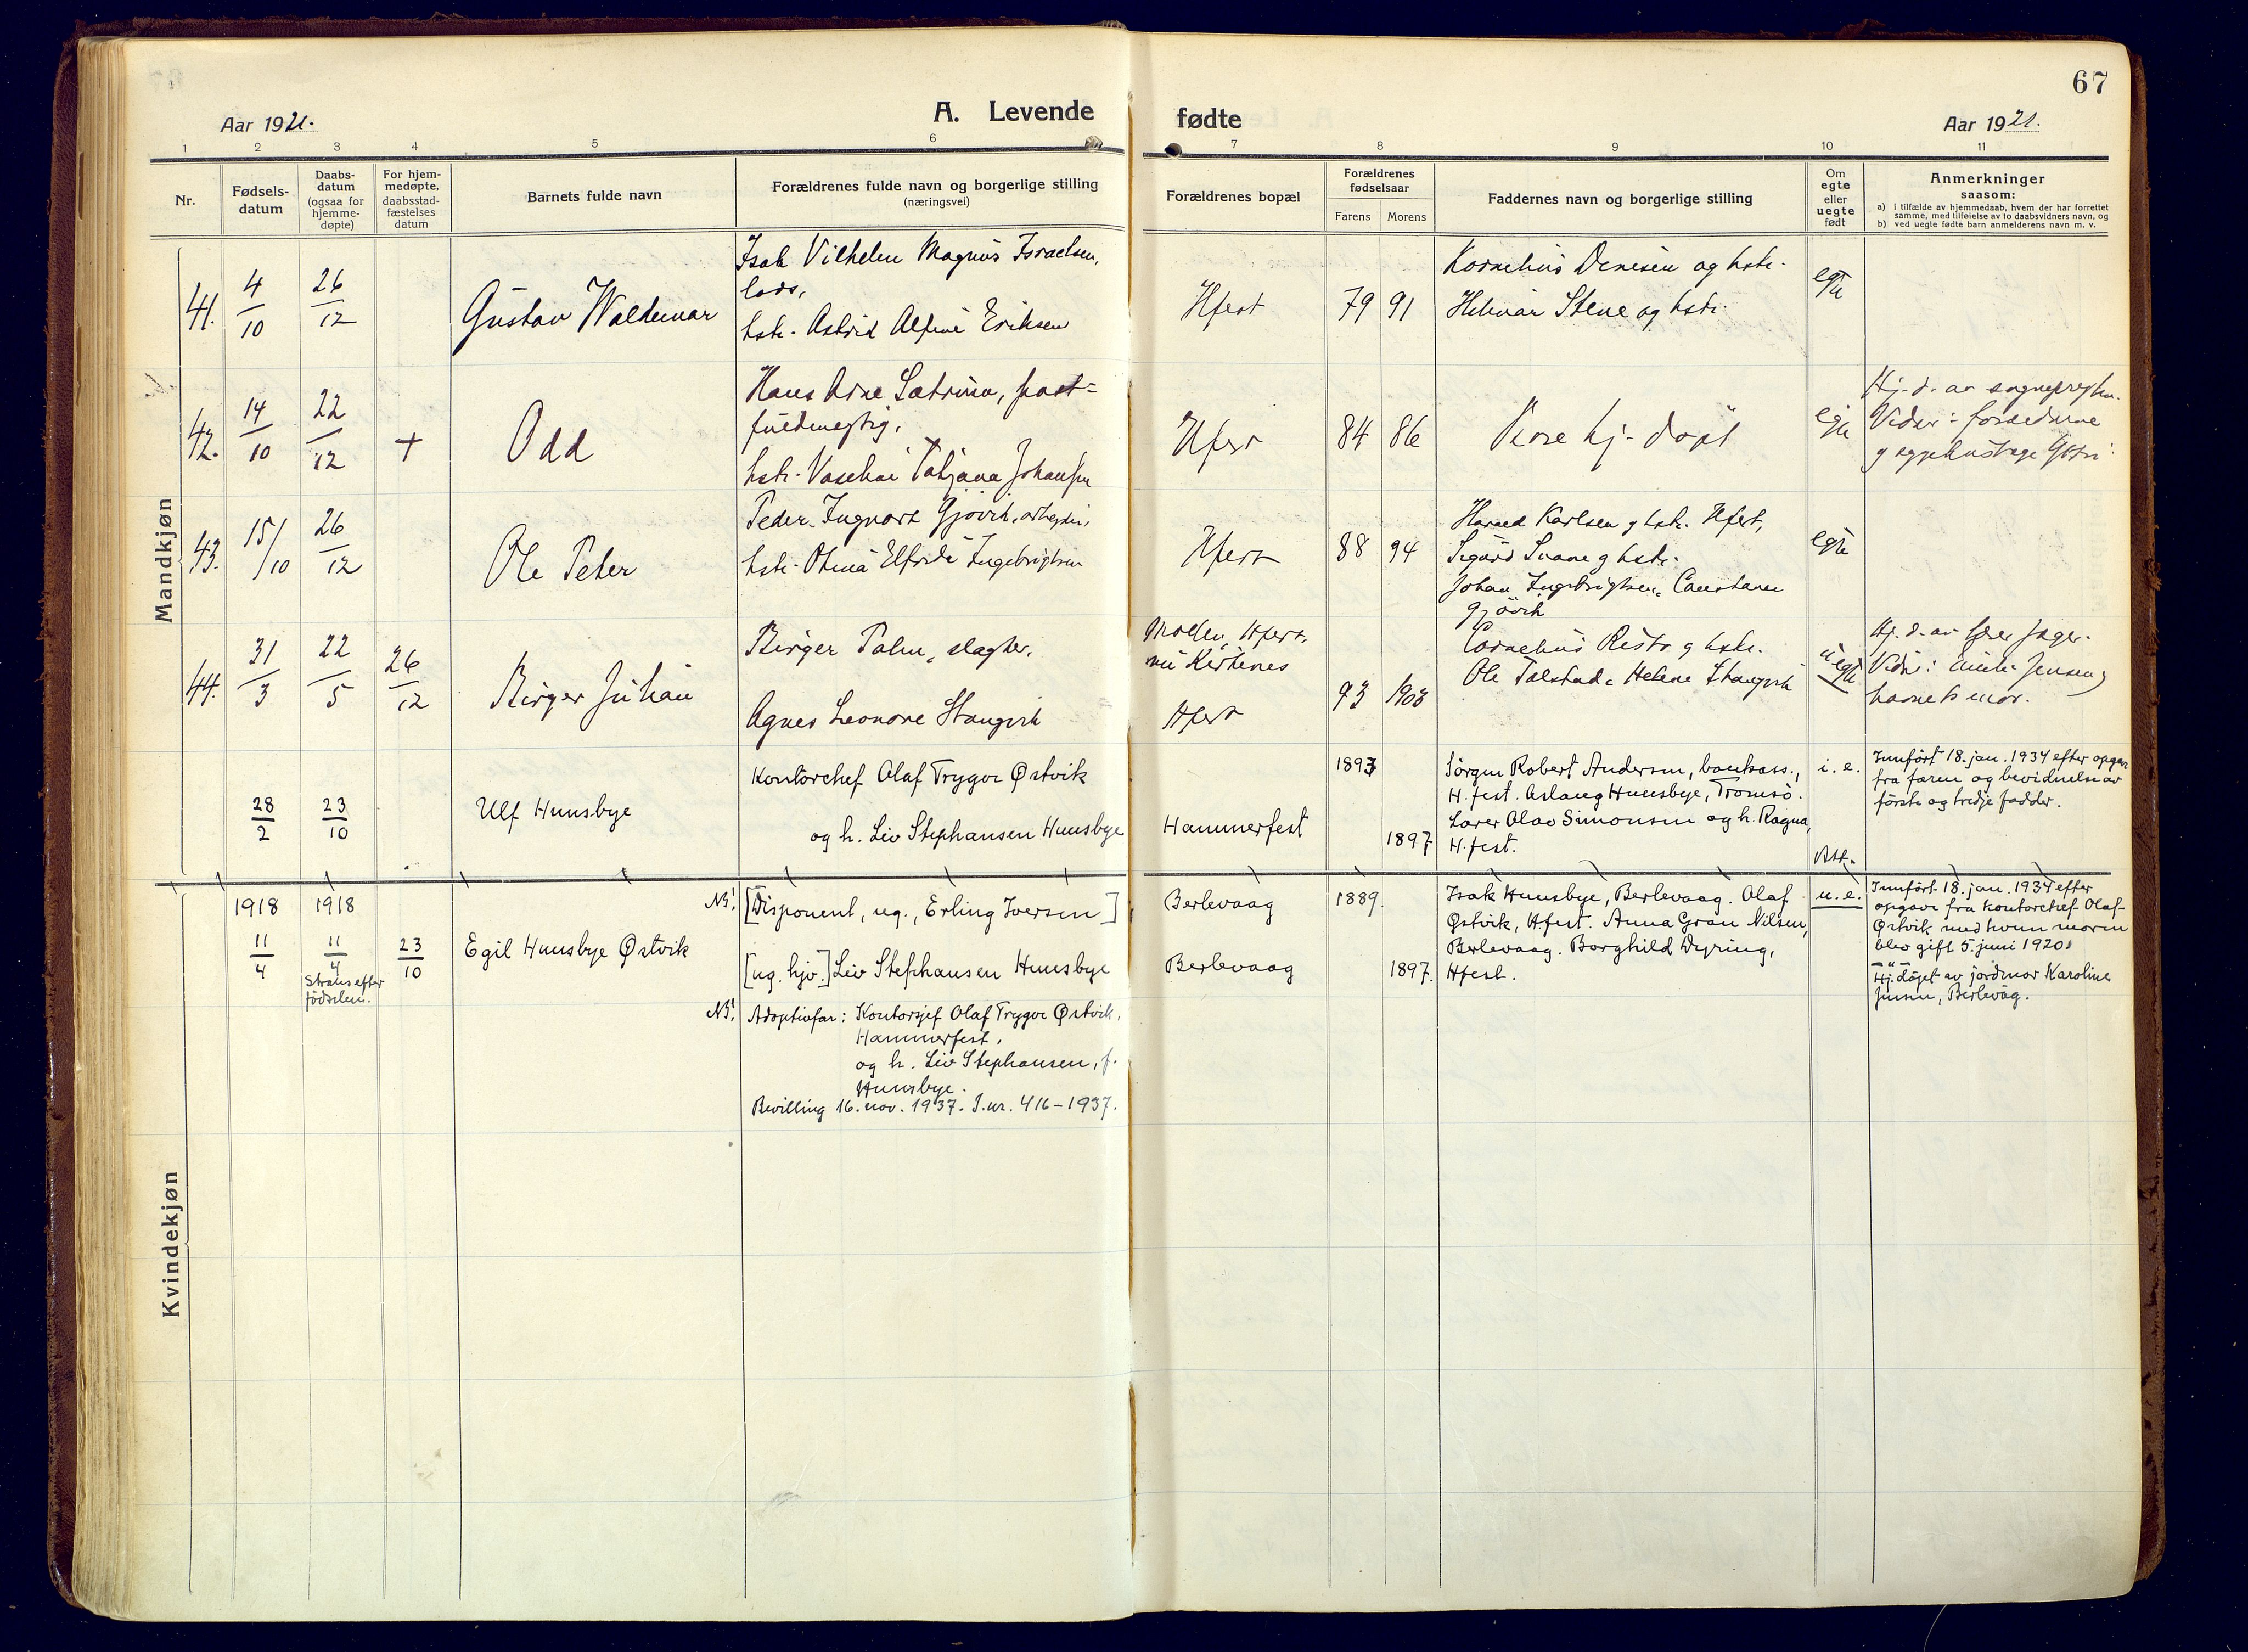 67
Aar 1921.
A. Levende fødte
Aar 1921.
1 2 3 4 5 6 7 8 9 10 11
Nr.
Fødsels-
datum
Daabs-
datum
(ogsaa for
hjemme-
døpte)
For hjem-
medøpte,
daabsstad-
fæstelses
datum
Barnets fulde navn
Forældrenes fulde navn og borgerlige stilling
(næringsvei)
Forældrenes bopæl
Forældrenes
fødselsaar
Farens Morens
Faddernes navn og borgerlige stilling
Om
egte
eller
uegte
født
Anmerkninger
saasom:
a) i tilfælde av hjemmedaab, hvem der har forrettet
samme, med tilføielse av to daabsvidners navn, og
b) ved uegte fødte barn anmelderens navn m. v.
Mandkjøn
41. 4/10 26/12
Gustav Waldemar
Isak Vilhelm Magnus Israelsen,
lods,
hstr. Astrid Alfine Eriksen
Hfest 79 91
Kornelius Denisen og hstr.
Hilmar Stene og hstr.
egte
42. 14/10 22/12 +
Odd
Hans Arne Sætrum, post-
fuldmegtig,
hstr. Tatjana Johansen
Hfest 84 86
hj. døpt
egte
Hj. d. av sognepresten.
Vidner: forældrene
43. 15/10 26/12
Ole Peter
Peder Ingvart Gjøvik, arbeyder,
hstr. Otina Elfrida Ingebrigtsen
Hfest 88 94
Harald Karlsen g hstr. Hfest,
Sigurd Svane g hstr.
Johan Ingebrigtsen, Constanse
Gjøvik
egte
44. 31/3 22/5 26/12
Birger Johan
Birger Palm, slagter.
Agnes Leonore Stangvik
Molla, Hfest,
nu Kirkenes
Hfest
93 1903
Cornelius Risto g hstr.
Ole Talstad, Helene Stangvik
uegte
Hj. d. av lærer Jager.
Vidn: Jensen g
barnets mor.
28/2 23/10
Ulf Hunsbye
Kontorchef Olaf Trygve Østvik
og h. Liv Stephansen Hunsbye
Hammerfest
1893
1897
Jørgen Robert Andersen, bankass.,
H.fest. Aslaug Hunsbye, Tromsø.
Lærer Olav Simonsen og h. Ragna,
H.fest.
i. e.
Innført 18. jan. 1934 efter opgave
fra faren og bevidnelse av
første og tredje fadder.
Kvindekjøn
1918 1918
11/4 11/4 23/10
Straks efter
fødselen.
Egil Hunsbye Østvik
NB! [Disponent, ug., Erling Iversen]
[ug. hjv.] Liv Stephansen Hunsbye
Berlevaag
Berlevaag
1889.
1897.
Isak Hunsbye, Berlevaag. Olaf
Østvik, Hfest. Anna Gran Nilsen,
Berlevaag. Borghild Dyring,
Hfest.
Att.
u. e.
Innført 18. jan. 1934 efter
opgave fra kontorchef Olaf
Østvik med hvem moren
blev gift 5. juni 1920.
Hj. døpt av jordmor Karoline
Jensen, Berlevåg.
NB! Adoptivfar: Kontorsjef Olaf Trygve Østvik,
Hammerfest,
og h. Liv Stephansen, f.
Hunsbye.
Bevilling 16. nov. 1937. J.nr. 416-1937.